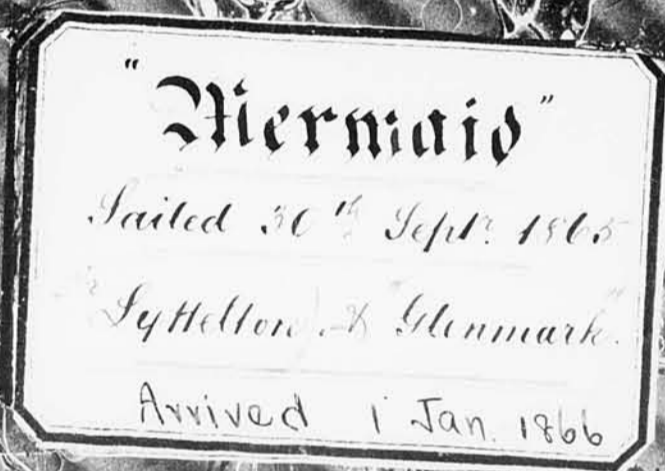 "Mermaid"
Sailed 30th Septr. 1865
Lyttelton "Glenmark".
Arrived 1 Jan. 1866